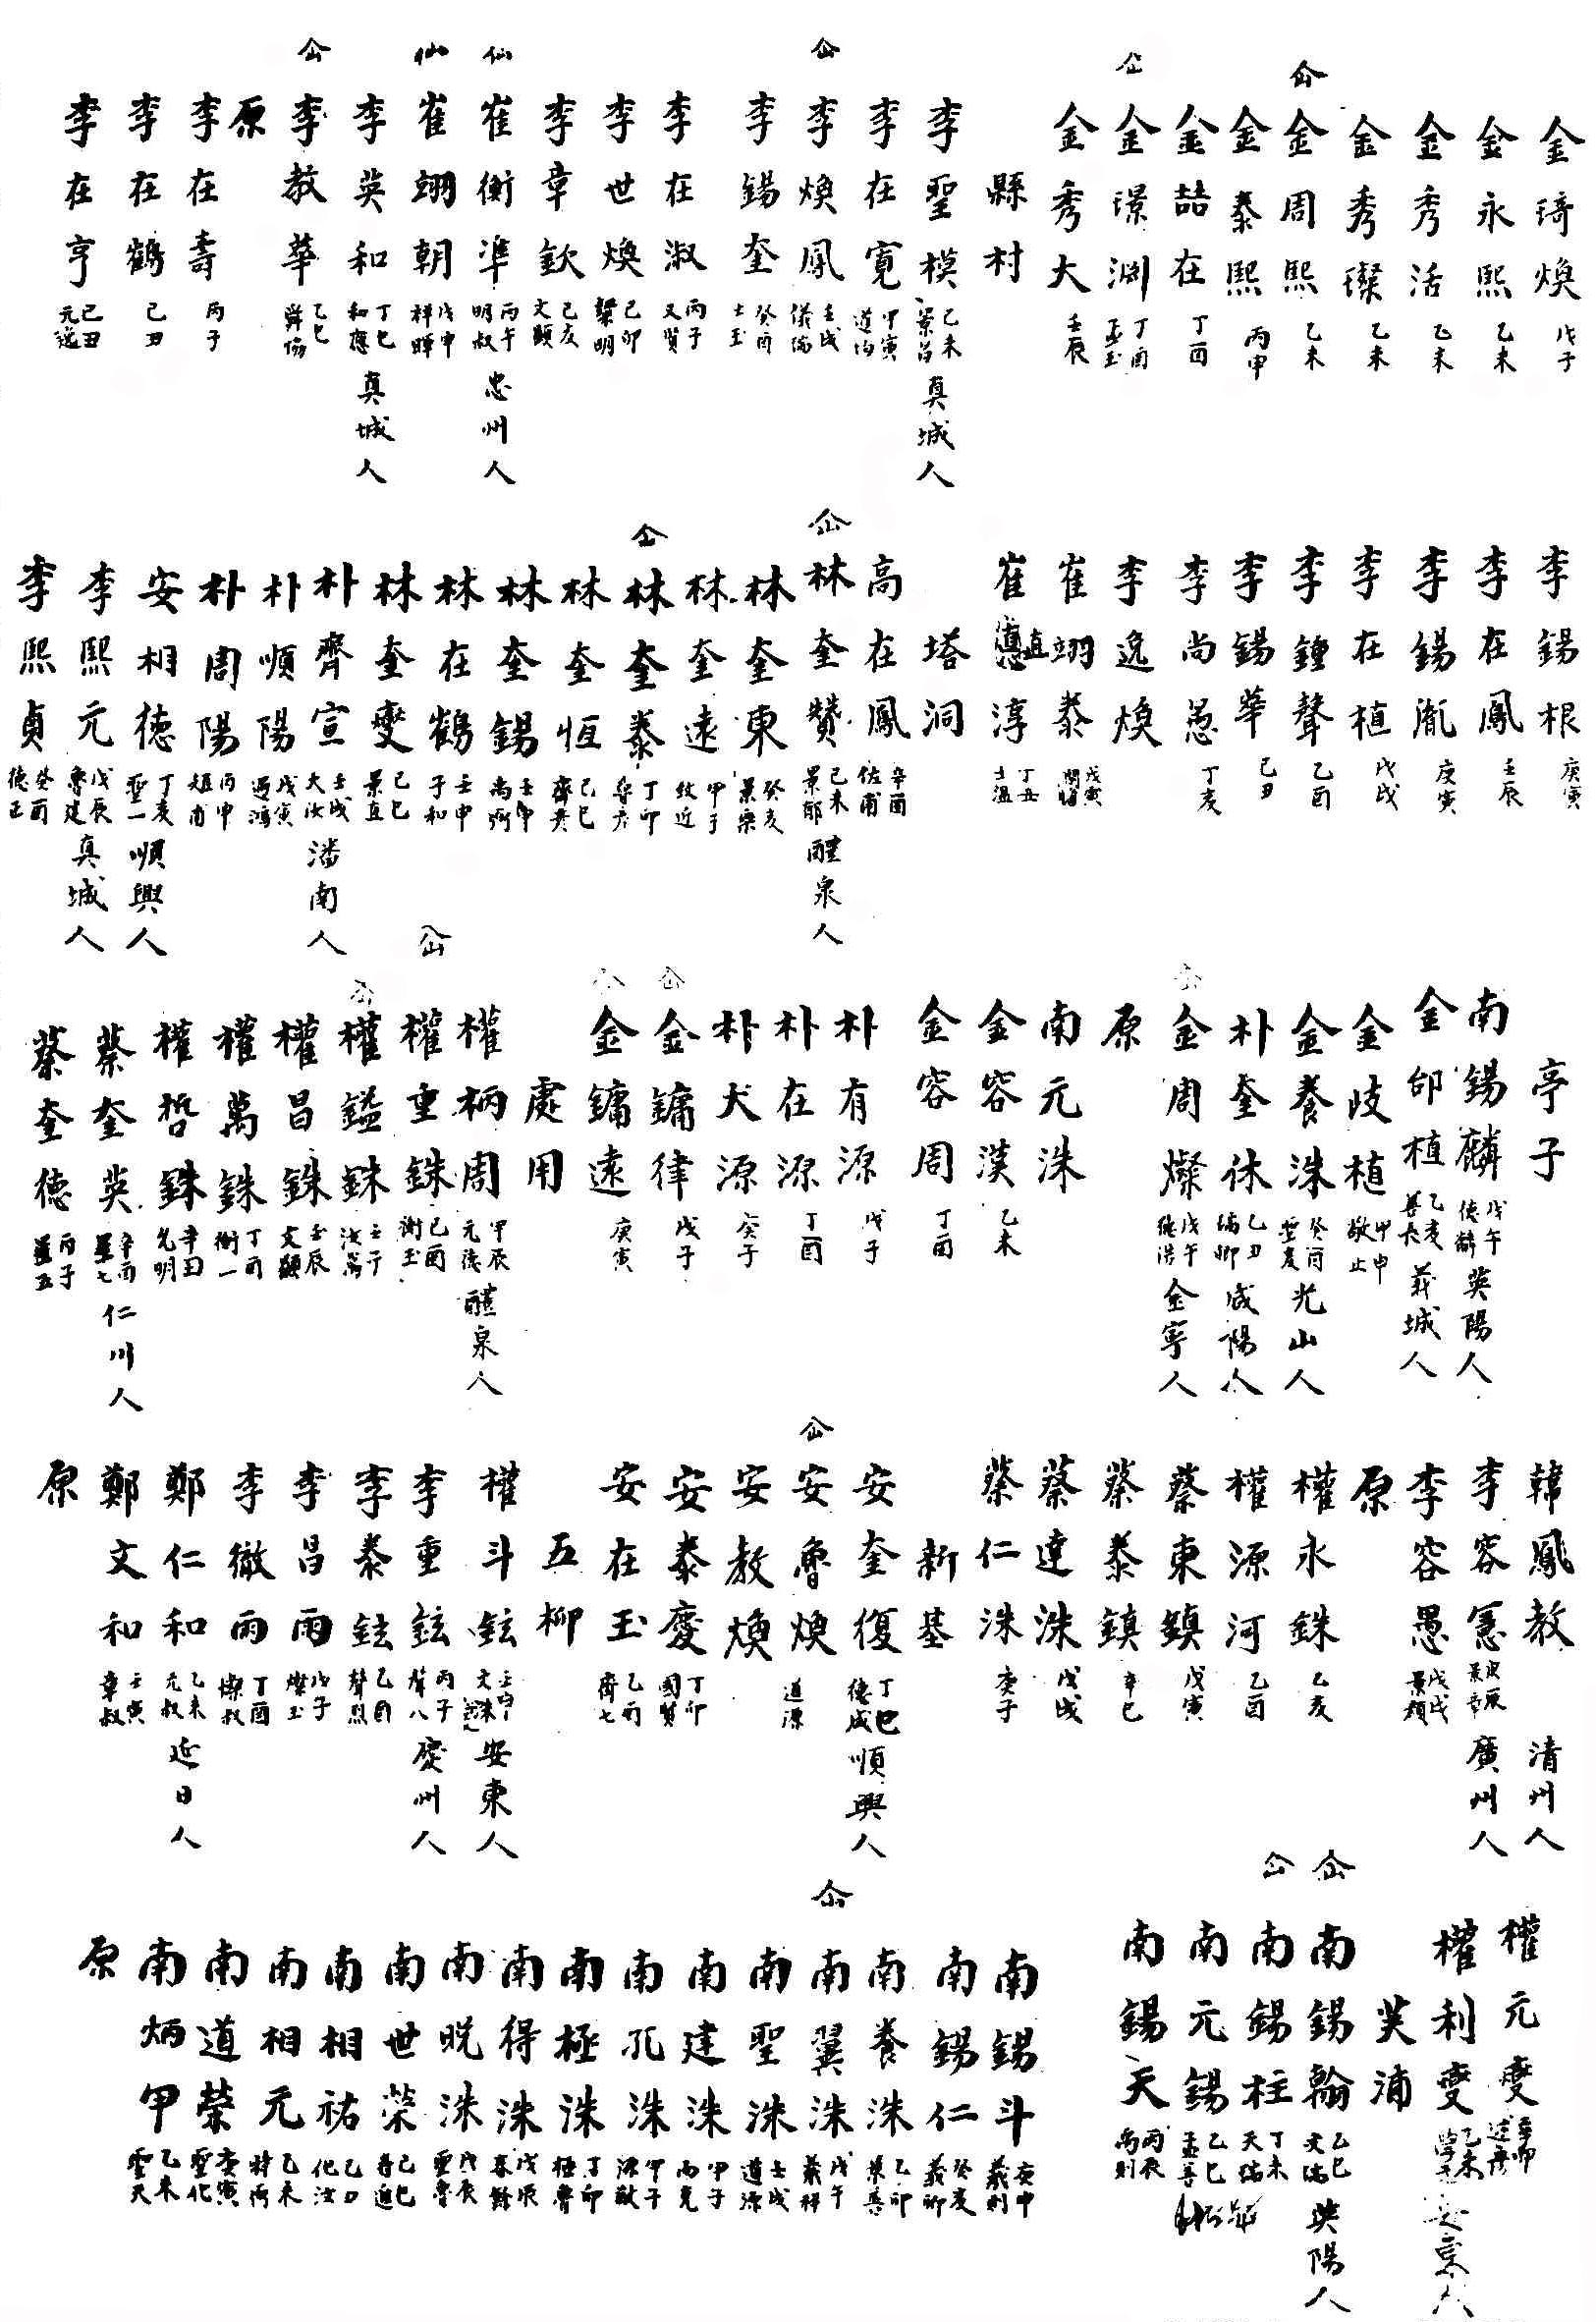 金琦煥 戊子
金永熙 乙未
金秀活 乙未
金秀璨 乙未
仚 金周熙 乙未
金泰熙 丙申
金喆在 丁酉
仚 金璟淵 丁酉 孟玉
金秀大 壬辰
縣村
李聖模 乙未 景昌 真城人
李在寬 甲寅 道均
仚 李煥鳳 壬戌 儀瑞
李錫奎 癸酉 士玉
李在淑 丙子 又賢
李世煥 己卯 粲明
李章欽 己亥 文顯
仙 崔衡準 丙午 明叔 忠州人
仙 崔翊朝 戊申 祥暉
李英和 丁巳 和應 真城人
仚 李教華 乙巳 舜陽
原
李在壽 丙子
李在鶴 己丑
李在亨 己丑 元逵
李錫根 庚寅
李在鳳 壬辰
李錫胤 庚寅
李在植 戊戌
李鍾聲 乙酉
李錫華 己丑
李尚愚 丁亥
李逸煥
崔翊泰 戊寅
崔悳淳 直 丁丑 士溫
塔洞
高在鳳 辛酉 佐甫
仚 林奎贊 己未 景郁 醴泉人
林奎東 癸亥 景樂
林奎遠 甲子 致近
仚 林奎泰 丁卯
林奎恒 己巳
林奎錫 壬申 禹弼
林在鶴 壬申 子和
林奎燮 己巳 景直
朴齊宣 壬戌 大汝 潘南人
朴順陽 戊寅 遇鴻
朴周陽 丙申 旭甫
安相德 丁亥 聖一 順興人
李熙元 戊辰 魯建 真城人
李熙貞 癸酉 德正
亭子
南錫麟 戊午 德麟 英陽人
金邰植 乙亥 善長 義城人
金岐植 甲申 敬止
金養洙 癸酉 聖度 光山人
朴奎休 乙丑 瑞卿 咸陽人
仚 金周燦 戊午 德浩 金寧人
原
南元洙
金容漢 乙未
金容周 丁酉
朴有源 戊子
朴在源 丁酉
朴犬源
仚 金鏞律 戊子
仚 金鏞遠 庚寅
處用
權柄周 甲辰 元德 醴泉人
仚 權重銖 己酉 衡玉
仚 權鎰銖 汝萬
權昌銖 壬辰 文顯
權萬銖 丁酉 衡一
權哲銖 辛丑 允明
蔡奎英 辛酉 仁川人
蔡奎德 丙子
韓鳳教 清州人
李容憲 庚辰 景章 廣州人
李容愚 戊戌 景顏
原
權永銖 乙亥
權源河 乙酉
蔡東鎮 戊寅
蔡泰鎮 辛巳
蔡達洙 戊戌
蔡仁洙 庚子
新基
安奎復 丁巳 德成 順興人
仚 安魯煥 道源
安教煥
安泰慶 丁卯 國賢
安在玉 乙酉 齊七
五柳
權斗鉉 壬申 文洙 安東人
李重鉉 丙子 聲八 慶州人
李泰鉉 乙酉 聲烈
李昌雨 戊子 燦玉
李徹雨 丁酉 燦叔
鄭仁和 乙未 元叔 迎日人
鄭文和 壬寅 章叔
原
權元燮 辛卯
權利燮 乙未 安東人
芙浦
仚 南錫翰 乙巳 文瑞 英陽人
仚 南錫柱 丁未 天瑞
南元錫 乙巳
南錫天 丙辰 禹則
南錫斗 庚申 義則
南錫仁 癸亥 義卿
南養洙 乙卯 景善
仚 南翼洙 戊午 義祥
南聖洙 壬戌 道源
南建洙 甲子 而見
南孔洙 甲子 淵敬
南極洙 丁卯 極魯
南得洙 戊辰 春餘
南晥洙 戊辰 聖魯
南世榮 己巳
南相祐 乙丑 化汝
南相元 乙未
南道榮 庚寅 聖化
南炳甲 乙未 聖天
原